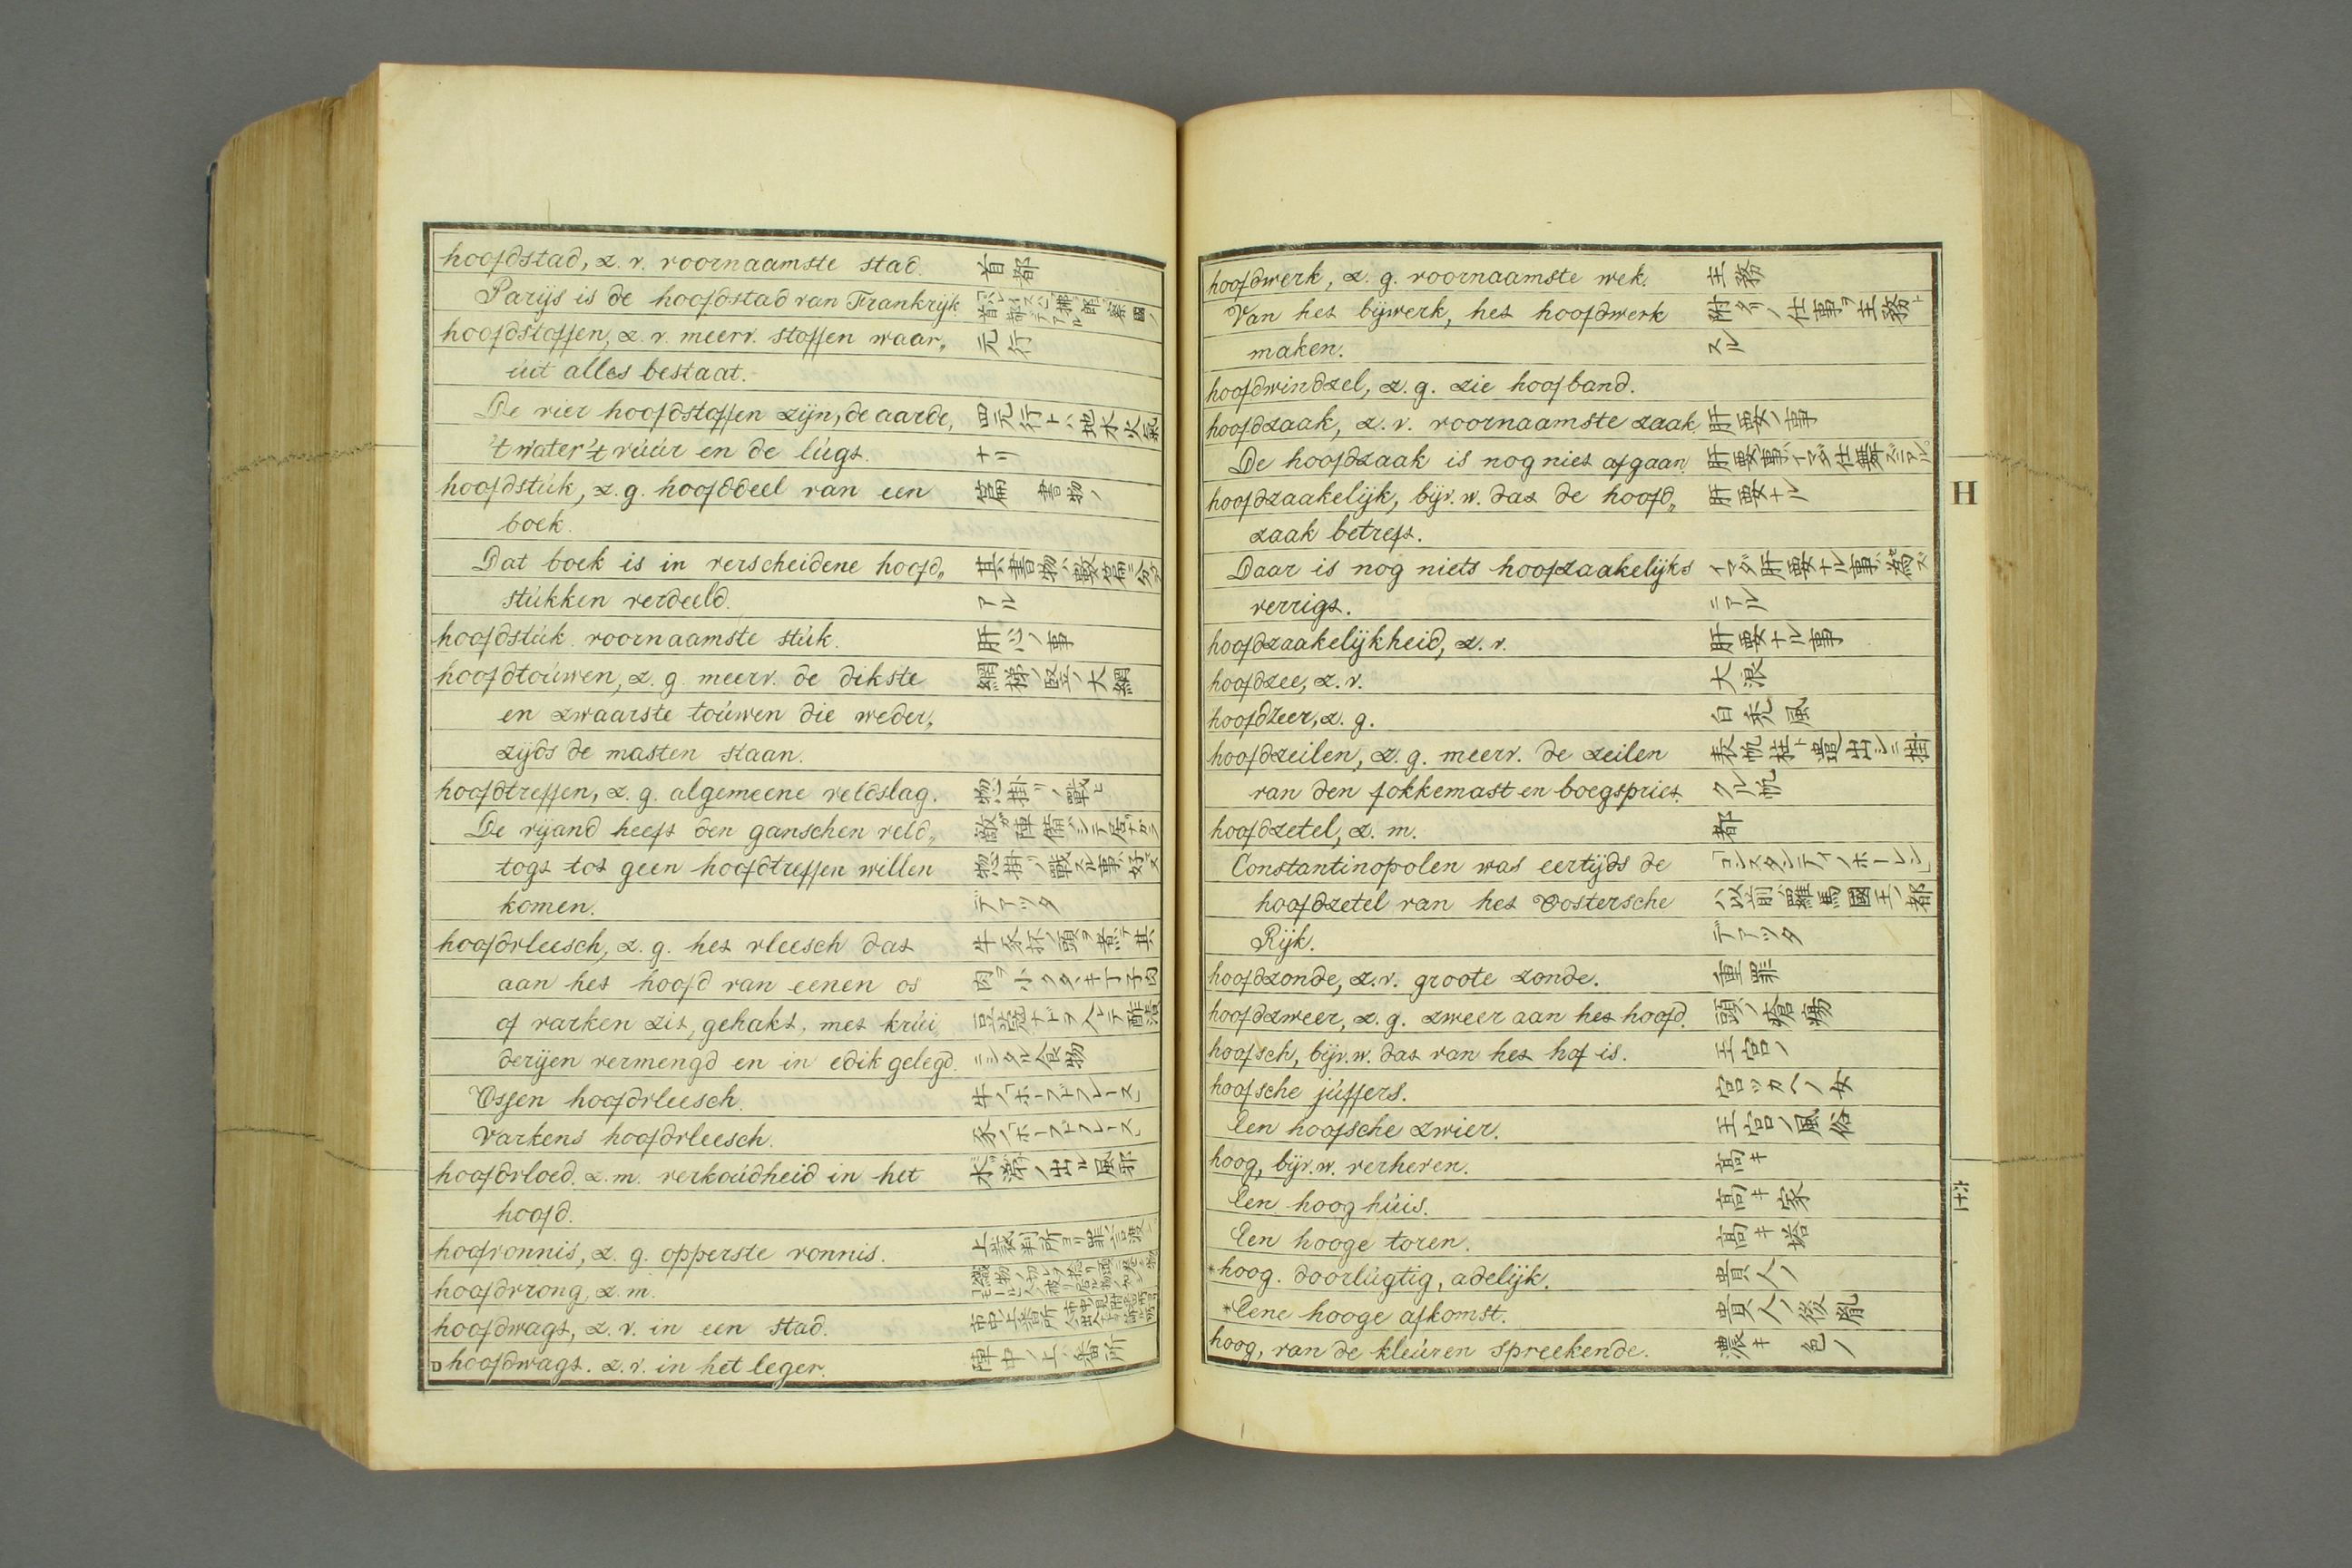 hoofdstad, z. v. voornaamste stad. 首都
Parijs is de hoofdstad van Frankrijk.
hoofdstoffen, z. v. meerv. stoffen waar„ 元行
úit alles bestaat.
De vier hoofdstoffen zijn, de aarde, 四元行トハ地水火氣
't water 't vúúr en de lúgt. ナリ
hoofdstúk, z. g. hoofddeel van een 書物ノ
boek.
Dat boek is in verscheidene hoofd„ 其書物ハ數篇ニ分テ
stúkken verdeeld. アル
hoofdstúk voornaamste stúk. 肝心ノ事
hoofdtoúwen, z. g. meerv. de dikste 綱梯ノ竪ノ大綱
en zwaarste toúwen die weder„
zijds de masten staan.
hoofdtreffen, z. g. algemeene veldslag. 惣掛リノ戰ヒ
De vijand heeft den ganschen veld„
togt tot geen hoofdtreffen willen 惣掛リノ戰スル事ヲ好マズ
komen. デアツタ
hoofdvleesch, z. g. het vleesch dat 牛豕抔ノ頭ヲ煮テ其
aan het hoofd van eenen os 肉ヲ小クタヽキ丁子肉
of varken zit, gehakt, met krúi 豆蔲ナドヲ入レテ酢漬
derijen vermengd en in edik gelegd. ニシタル食物
Ossen hoofdvleesch. 牛ノ「ホーフドフレース」
Varkens hoofdvleesch. 豕ノ「ホーフドフレース」
hoofdvloed. z. m. verkoúdheid in het 水洟ノ出ル風邪
hoofd.
hoofvonnis, z. g. opperste vonnis. 上裁判所ヨリ罪ノ言渡シ
hoofdvrong, z. m.
hoofdwagt, z. v. in een stad. 市中ノ上番所
hoofdwagt. z. v. in het leger. 陣中ノ上番所
hoofdwerk, z. g. voornaamste wek. 主務
Van het bijwerk, het hoofdwerk 附タリノ仕事ヲ主務ト
maken. スル
hoofdwindzel, z. g. zie hoofband.
hoofdzaak, z. v. voornaamste zaak. 肝要ノ事
De hoofdzaak is nog niet afgaan. 肝要ノ事ハイマダ仕舞ズニアル。
hoofdzaakelijk, bijv. w. dat de hoofd„ 肝要ナル
zaak betreft.
Daar is nog niets hoofzaakelijks イマダ肝要ナル事ハ為ズ
verrigt. ニアル
hoofdzaakelijkheid, z. v. 肝要ナル事
hoofdzee, z. v. 大浪
hoofdzeer, z. g. 白禿風
hoofdzeilen, z. g. meerv. de zeilen 表帆柱ト遣出シニ掛
van den fokkemast en boegspriet. クル帆
hoofdzetel, z. m. 都
Constantinopolen was eertijds de 「コンスタンティノポーレン」
hoofdzetel van het Oostersche ハ以前羅馬國王ノ都
Rijk. デアツタ
hoofdzonde, z. v. groote zonde. 重罪
hoofdzweer, z. g. zweer aan het hoofd. 頭ノ瘡瘍
hoofsch, bijv. w. dat van het hof is. 王宮ノ
hoofsche júffers. 宮ツカヘノ女
Een hoofsche zwier. 王宮ノ風俗
hoog, bijv. w. verheven. 高キ
Een hoog húis. 高キ家
Een hooge toren. 高キ塔
*hoog. doorlúgtig, adelijk. 貴人ノ
*Eene hooge afkomst. 貴人ノ後胤
hoog, van de kleúren spreekende. 濃キ 色ノ
H